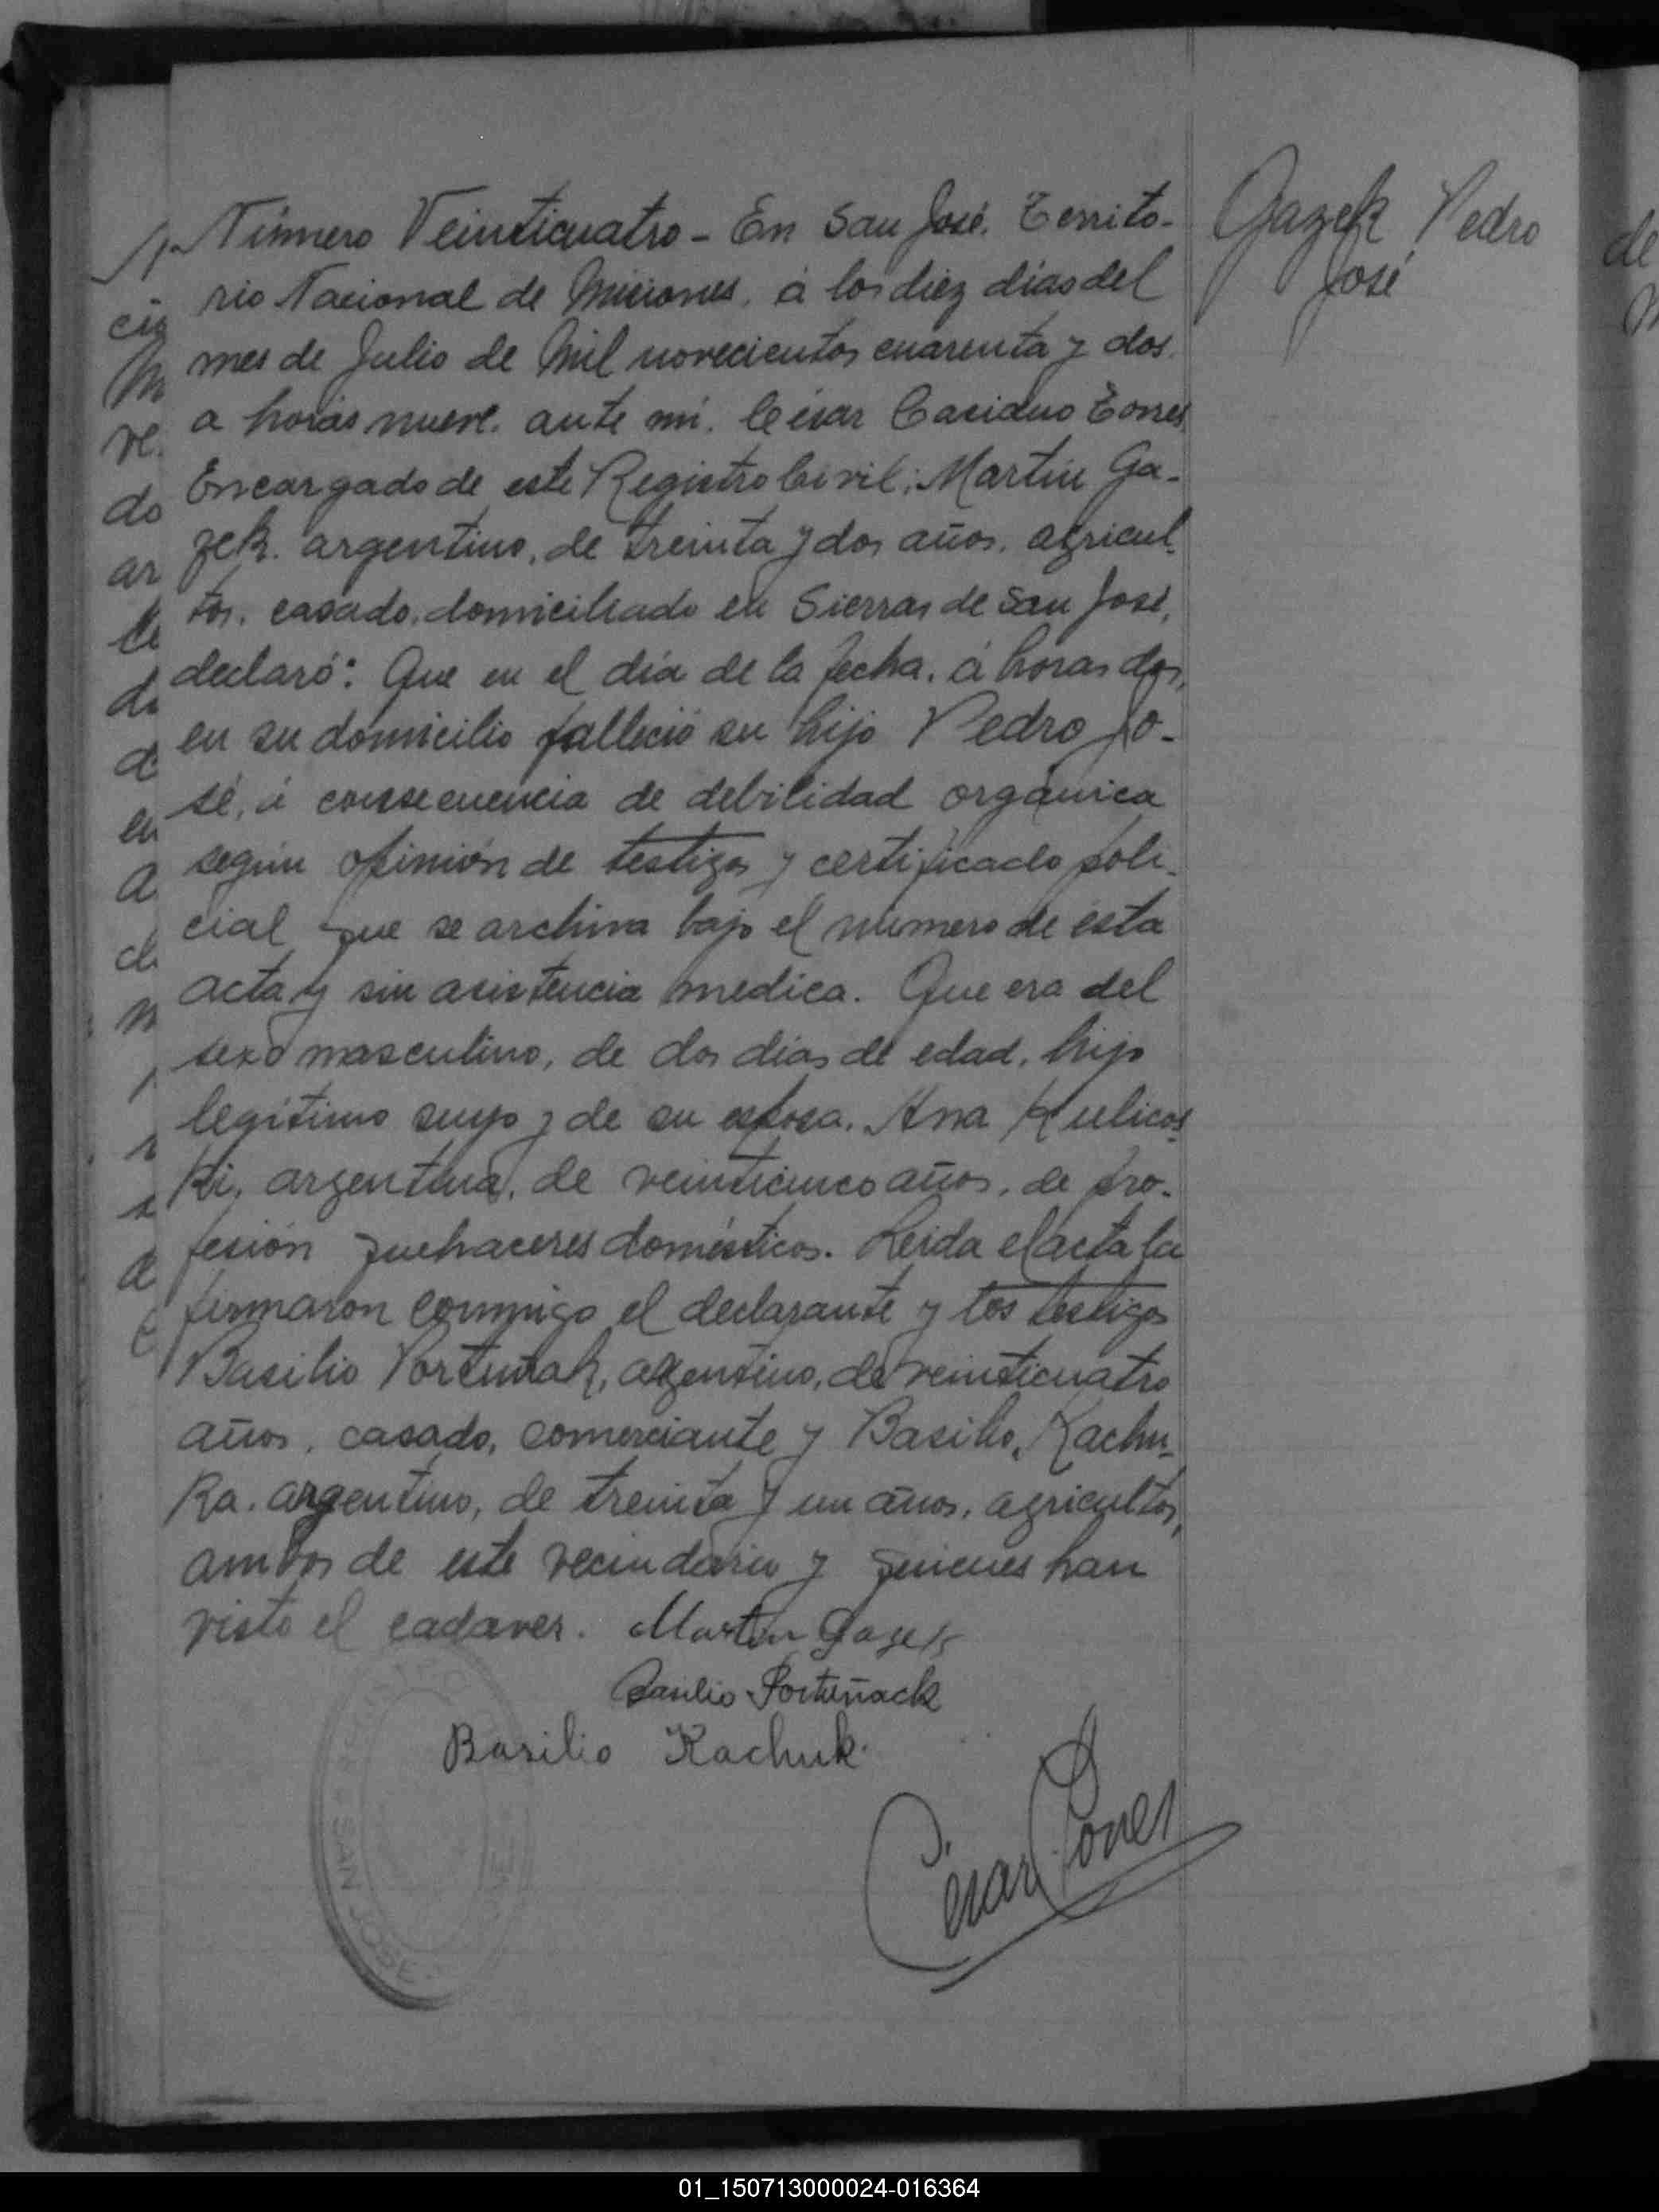 Gazek Pedro
José
Número Veinticuatro - En San José, Territo-
rio Nacional de Misiones, á los diez dias del
mes de Julio de Mil novecientos cuarenta y dos
a horas nueve. ante mi. César Torres
Encargado de este Registro Civil; Martin Ga-
zek. argentino, de treinta y dos años, agricul-
tor. casado, domiciliado en Sierras de San José,
declaró: Que en el dia de la fecha, á horas dos,
en su domicilio falleció su hijo Pedro Jo-
sé, á consecuencia de debilidad orgánica
según opinión de testigos y certificado poli-
cial que se archiva bajo el número de esta
acta y sin asistencia medica. Que era del
sexo masculino, de dos dias de edad, hijo
legítimo suyo y de su esposa, Ana Kulicos-
ki, argentina, de veinticinco años, de pro-
fesión quehaceres domésticos. Leida el acta la
firmaron conmigo el declarante y los testigos
Basilio Portuñak, argentino, de veinticuatro
años, casado, comerciante y Basilio Kachu-
ka. argentino, de treinta y un años, agricultor,
ambos de este vecindario y quienes han
visto el cadaver. Martin Gazek
Basilio Portuñack
Basilio Kachuk.
César Torres
SAN JOSE
01_150713000024-016364